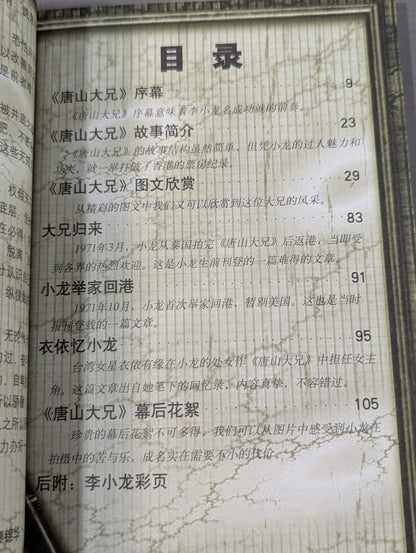 目 录
《唐山大兄》序幕 9
《唐山大兄》序幕意味着李小龙名成功就的前奏。
《唐山大兄》故事简介 23
《唐山大兄》的故事结构虽然简单，但凭小龙的过人魅力和
功夫，就一举打破了香港的票房纪录。
《唐山大兄》图文欣赏 29
从精彩的图文中我们又可以欣赏到这位大兄的风采。
大兄归来 83
1971年3月，小龙从泰国拍完《唐山大兄》后返港，当即受
到各界的热烈欢迎。这是小龙生前刊登的一篇难得的文章。
小龙举家回港 91
1971年10月，小龙首次举家回港，暂别美国。这也是当时
报刊登载的一篇文章。
衣依忆小龙 95
台湾女星衣依有缘在小龙的处女作《唐山大兄》中担任女主
角。这篇文章出自她笔下的回忆录，内容真挚，不容错过。
《唐山大兄》幕后花絮 105
珍贵的幕后花絮不可多得，我们可以从图片中感受到小龙在
拍摄中的苦与乐，成名实在需要不小的代价。
后附：李小龙彩页